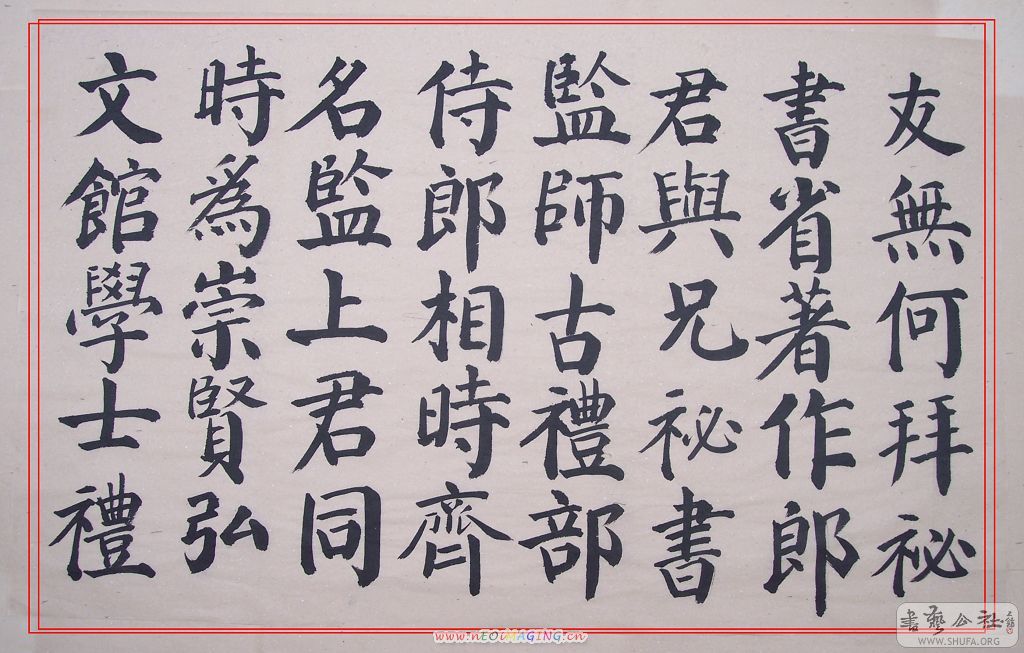 友無何拜祕
書省著作郎
君與兄祕書
監師古禮部
侍郎相時齊
名監上君同
時為崇賢弘
文館學士禮
書藝公社
WWW.SHUFA.ORG
www.nEOiMAGING.cn